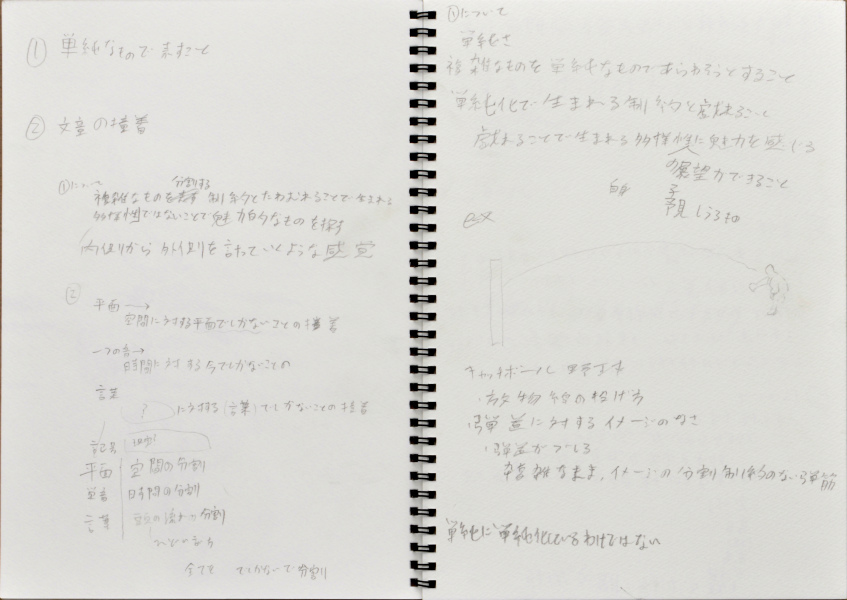 ① 単純なもので表すこと
② 文章の撞着
①について
分割する
複雑なものを表す 制約とたわむれることで生まれる
多様性ではないことで魅力的なものを探す
内側から外側を討っていくような感覚
②
平面→
空間に対する平面でしかないことの撞着
一つの音→
時間に対する 今でしかないこと
言葉
?に対する「言葉」でしかないことの撞着
記号
平面 空間の分割
単音 時間の分割
言葉 の流れの分割
全てを でしかないで分割
①について
単純さ
複雑なものを単純なものであらわそうとすること
単純化で生まれる制約と戯れること
戯れることで生まれる多様性に魅力を感じる
の願望ができること
自分 予
視しうるもの
ex
キャッチボール 野球
・放物線の投げ方
・弾道に対するイメージのなさ
・弾道がブレる
複雑なまま、イメージの分割 制約のない弾筋
単純に単純化しているわけではない